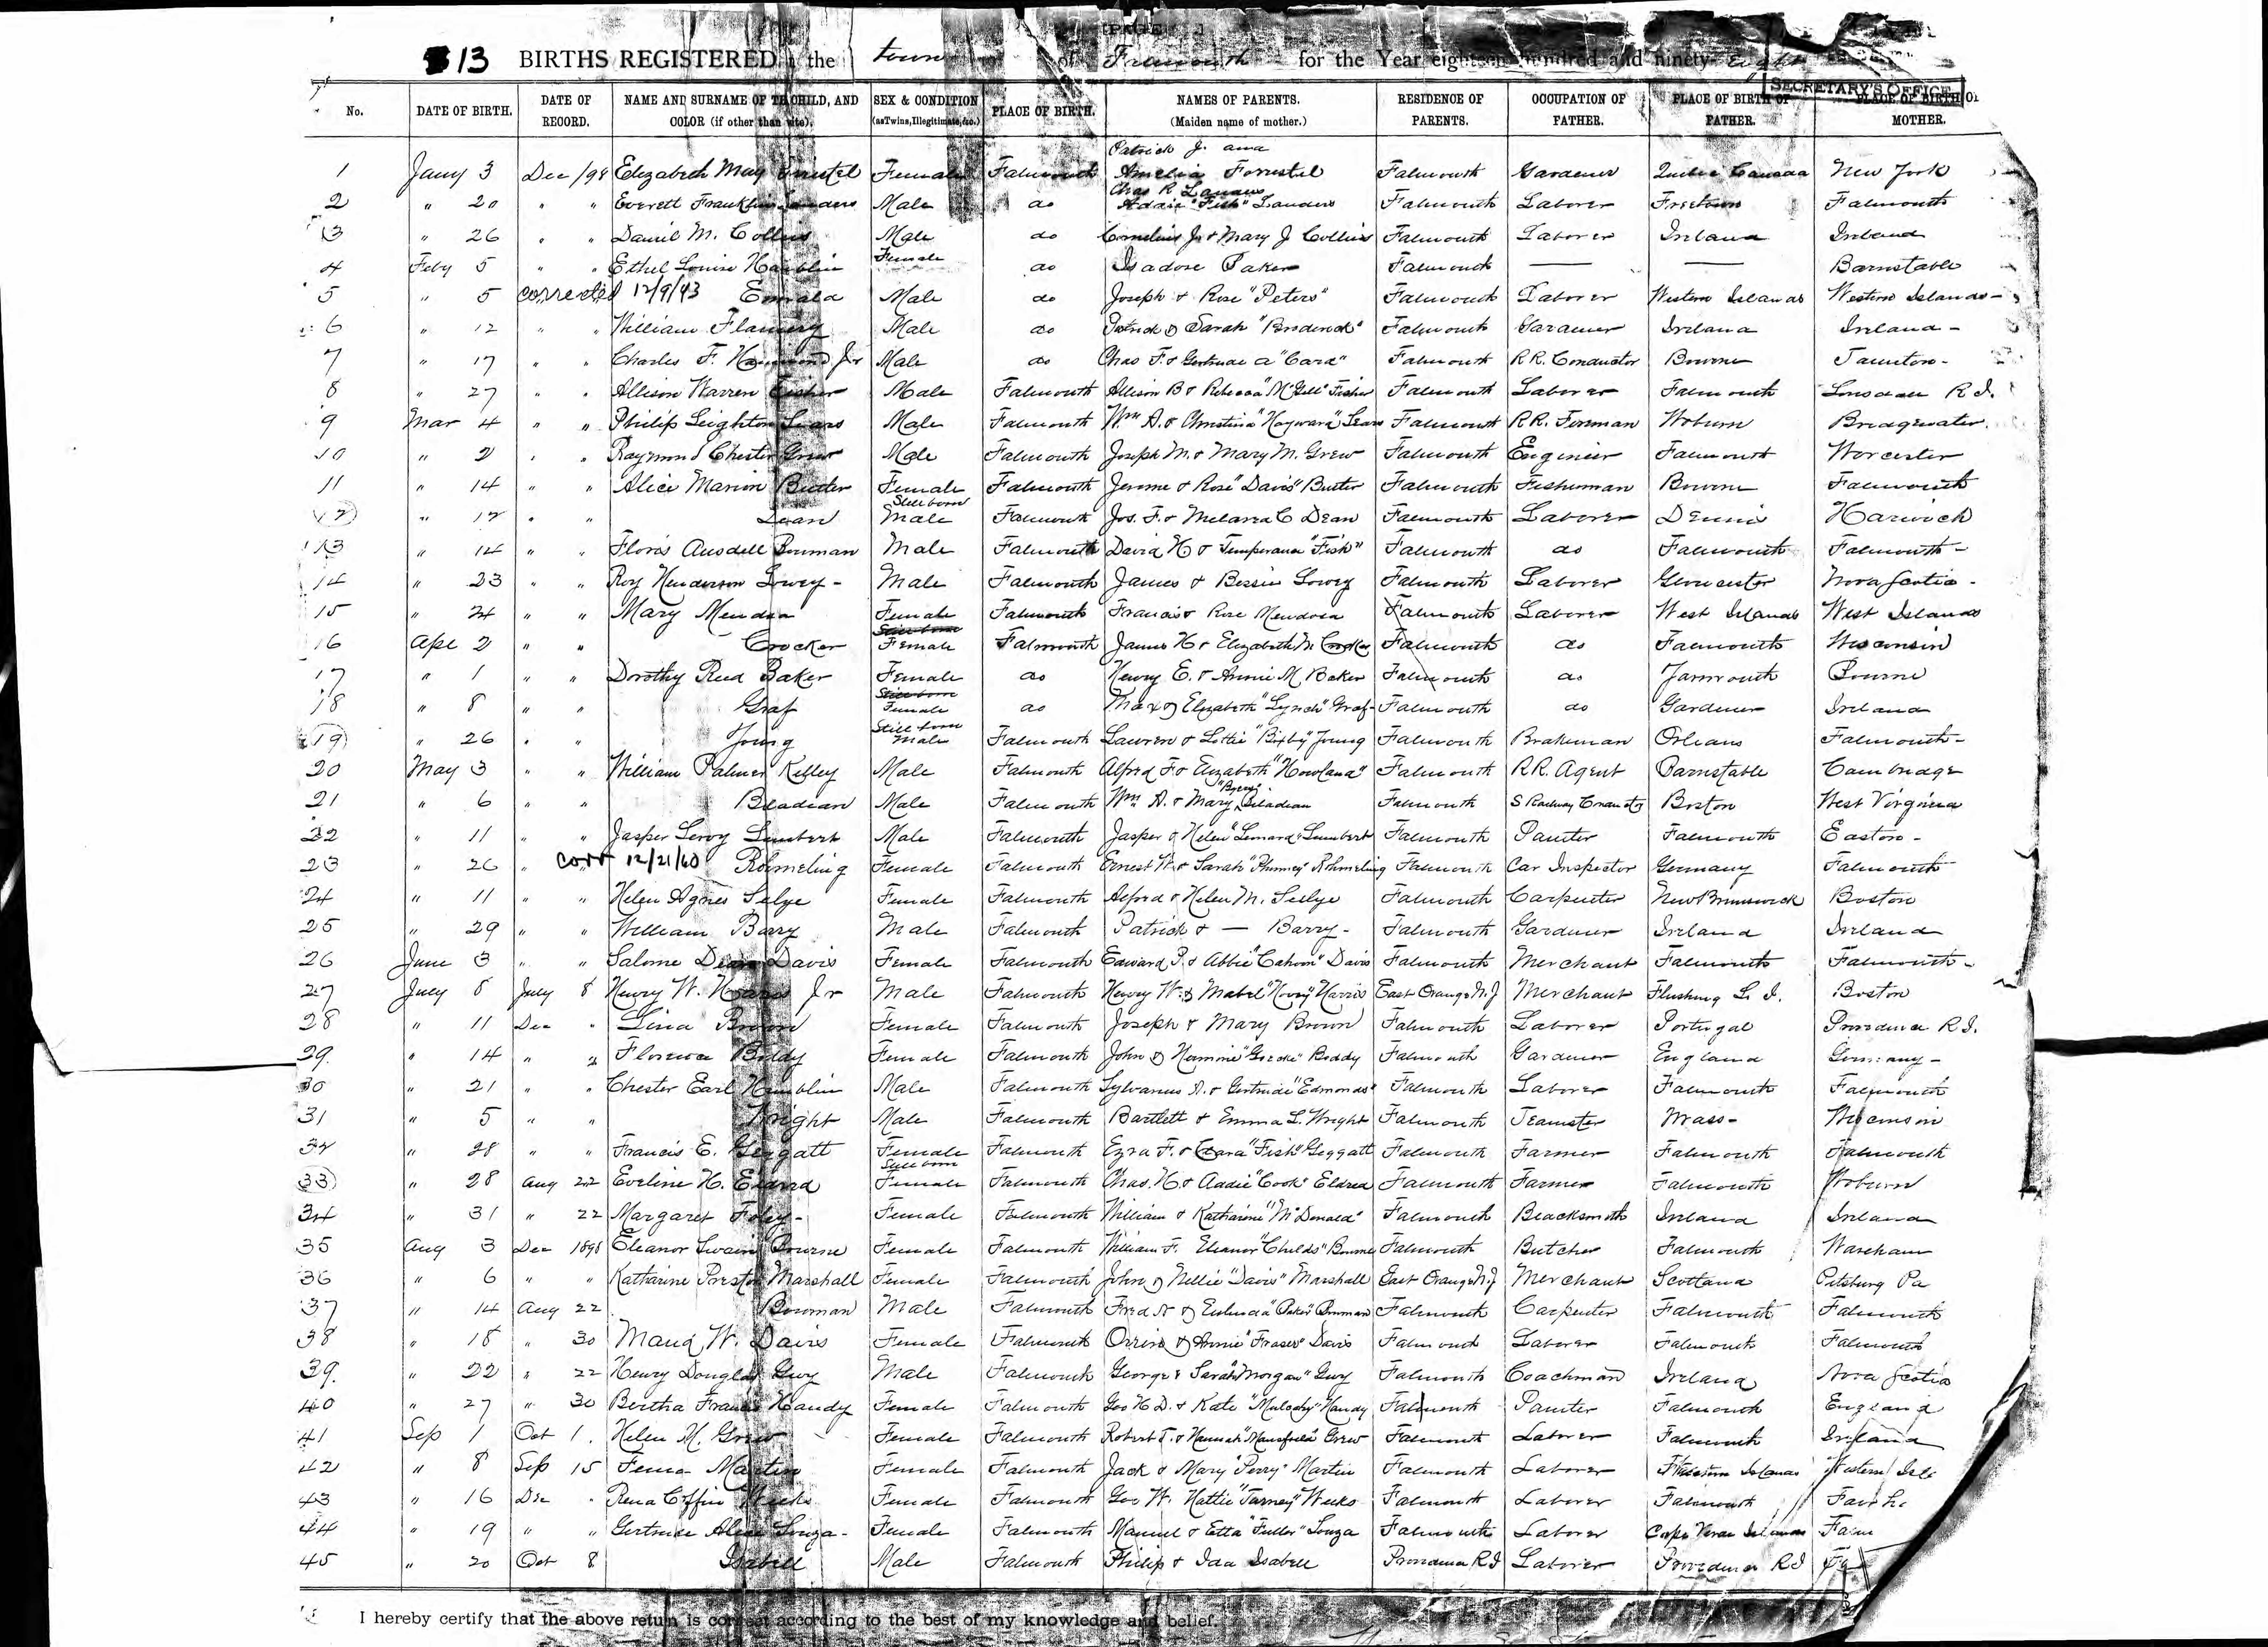 [PAGE 1]
13 BIRTHS REGISTERED in the town of Falmouth for the Year eighteen hundred and ninety eight
SECRETARY'S OFFICE
No. DATE OF BIRTH. DATE OF RECORD. NAME AND SURNAME OF THE CHILD, AND COLOR (if other than white). SEX & CONDITION (as Twins, Illegitimate, &c.) PLACE OF BIRTH. NAMES OF PARENTS. (Maiden name of mother.) RESIDENCE OF PARENTS. OCCUPATION OF FATHER. PLACE OF BIRTH OF FATHER. PLACE OF BIRTH OF MOTHER.
1 Jany 3 Dec /98 Elizabeth May Forristel Female Falmouth Patrick J. and Amelia Forristel Falmouth Gardener Quebec Canada New York
2 " 20 " " Everett Franklin Landers Male do Chas R Landers Addie "Fish" Landers Falmouth Laborer Freetown Falmouth
3 " 26 " " Daniel M. Collins Male do Cornelius Jr & Mary J Collins Falmouth Laborer Ireland Ireland
4 Feby 5 " " Ethel Louise Hamblin Female do Isadore Baker Falmouth — — Barnstable
5 " 5 corrected 12/9/43 Male do Joseph & Rose "Peters" Falmouth Laborer Western Islands Western Islands -
6 " 12 " " William Flannery Male do Patrick & Sarah "Broderick" Falmouth Gardener Ireland Ireland -
7 " 17 " " Charles F. Hammond Jr Male do Chas F. & Gertrude A "Card" Falmouth R.R. Conductor Bourne Taunton -
8 " 27 " " Allison Warren Fisher Male Falmouth Allison B & Rebecca "McGill" Fisher Falmouth Laborer Falmouth Lonsdale R.I.
9 Mar 4 " " Philip Leighton Sears Male Falmouth Wm A. & Christina "Hayward" Sears Falmouth R.R. Foreman Woburn Bridgewater
10 " 2 " " Raymond Chester Grew Male Falmouth Joseph M. & Mary M. Grew Falmouth Engineer Falmouth Worcester
11 " 14 " " Alice Marion Butler Female Falmouth Jerome & Rose "Davis" Butler Falmouth Fisherman Bourne Falmouth
12 " 12 " " Dean Still born Male Falmouth Jos. F. & Melania C Dean Falmouth Laborer Dennis Harwich
13 " 14 " " Floris Ausdell Bowman Male Falmouth David H & Temperance "Fish" Falmouth do Falmouth Falmouth -
14 " 23 " " Roy Henderson Lowey - Male Falmouth James & Bessie Lowey Falmouth Laborer Gloucester Nova Scotia -
15 " 24 " " Mary Mendza Female Falmouth Francis & Rose Mendoza Falmouth Laborer West Islands West Islands
16 Apl 2 " " Crocker Still born Female Falmouth James H & Elizabeth M. Crocker Falmouth do Falmouth Wisconsin
17 " 1 " " Dorothy Reed Baker Female do Henry E. & Annie M Baker Falmouth do Yarmouth Bourne
18 " 8 " " Graf Still born Female do Max & Elizabeth "Lynch" Graf - Falmouth do Gardener Ireland
19 " 26 " " Young Still born Male Falmouth Lauren & Lottie "Bixby" Young Falmouth Brakeman Orleans Falmouth -
20 May 3 " " William Palmer Kelley Male Falmouth Alfred F & Elizabeth "Howland" Falmouth R.R. Agent Barnstable Cambridge
21 " 6 " " Beladian Male Falmouth Wm A. & Mary Beladian Falmouth Boston West Virginia
22 " 11 " " Jasper Leroy Lumbert Male Falmouth Jasper & Helen "Leonard" Lumbert Falmouth Painter Falmouth Easton -
23 " 26 " corr 12/21/60 Rohmeling Female Falmouth Ernest W. & Sarah "Phinney" Rohmeling Falmouth Car Inspector Germany Falmouth
24 " 11 " " Helen Agnes Selye Female Falmouth Alford & Helen M. Sellye Falmouth Carpenter New Brunswick Boston
25 " 29 " " William Barry Male Falmouth Patrick & — Barry - Falmouth Gardener Ireland Ireland
26 June 3 " " Salome Dean Davis Female Falmouth Edward P. & Abbie "Cahoon" Davis Falmouth Merchant Falmouth Falmouth -
27 July 8 July 8 Henry W. Harris Jr Male Falmouth Henry W. & Mabel "Hovey" Harris East Orange N.J Merchant Flushing L. I. Boston
28 " 11 Dec " Lina Brown Female Falmouth Joseph & Mary Brown Falmouth Laborer Portugal Providence R.I.
29. " 14 " " Florence Boddy Female Falmouth John & Hermine Boddy Falmouth Gardener England Germany -
30 " 21 " " Chester Earl Hamblin Male Falmouth Sylvanus A. & Gertrude "Edmonds" Falmouth Laborer Falmouth Falmouth
31 " 5 " " Wright Male Falmouth Bartlett & Emma L. Wright Falmouth Teamster Mass - Wisconsin
32 " 28 " " Francis E. Geggatt Female Falmouth Ezra F. & Clara "Fish" Geggatt Falmouth Farmer Falmouth Falmouth
33 " 28 Aug 22 Eveline H. Eldred Still born Female Falmouth Chas. H. & Addie "Cook" Eldred Falmouth Farmer Falmouth Woburn
34 " 31 " 22 Margaret Foley - Female Falmouth William & Katharine "McDonald" Falmouth Blacksmith Ireland Ireland
35 Aug 3 Dec 1898 Eleanor Swain Bourne Female Falmouth William F. Eleanor "Childs" Bourne Falmouth Butcher Falmouth Wareham
36 " 6 " " Katharine Preston Marshall Female Falmouth John & Nellie "Davis" Marshall East Orange N.J Merchant Scotland Pittsburg Pa
37 " 14 Aug 22 Bowman Male Falmouth Fred N & "Baker" Bowman Falmouth Carpenter Falmouth Falmouth
38 " 18 " 30 Maud W. Davis Female Falmouth Orrin & Annie "Fraser" Davis Falmouth Laborer Falmouth Falmouth
39. " 22 " 22 Henry Douglas Guy Male Falmouth George & Sarah "Morgan" Guy Falmouth Coachman Ireland Nova Scotia
40 " 27 " 30 Bertha Francis Handy Female Falmouth Geo H D. & Kate Handy Falmouth Painter Falmouth England
41 Sep 1 Oct 1. Helen M. Grew Female Falmouth Robert T. & Hannah "Mansfield" Grew Falmouth Laborer Falmouth Ireland
42 " 8 Sep 15 Martin Female Falmouth Jack & Mary "Perry" Martin Falmouth Laborer Western Islands Western Isle
43 " 16 Dec " Rena Coffin Weeks Female Falmouth Geo W. Hattie Weeks Falmouth Laborer Falmouth Fairh
44 " 19 " " Gertrude Souza - Female Falmouth Manuel & Etta "Fuller" Souza Falmouth Laborer Cape Verde Islands Falm
45 " 20 Oct 8 Isabell Male Falmouth Philip & Ida Isabell Providence R I Laborer Providence R I Fa
I hereby certify that the above return is correct according to the best of my knowledge and belief.